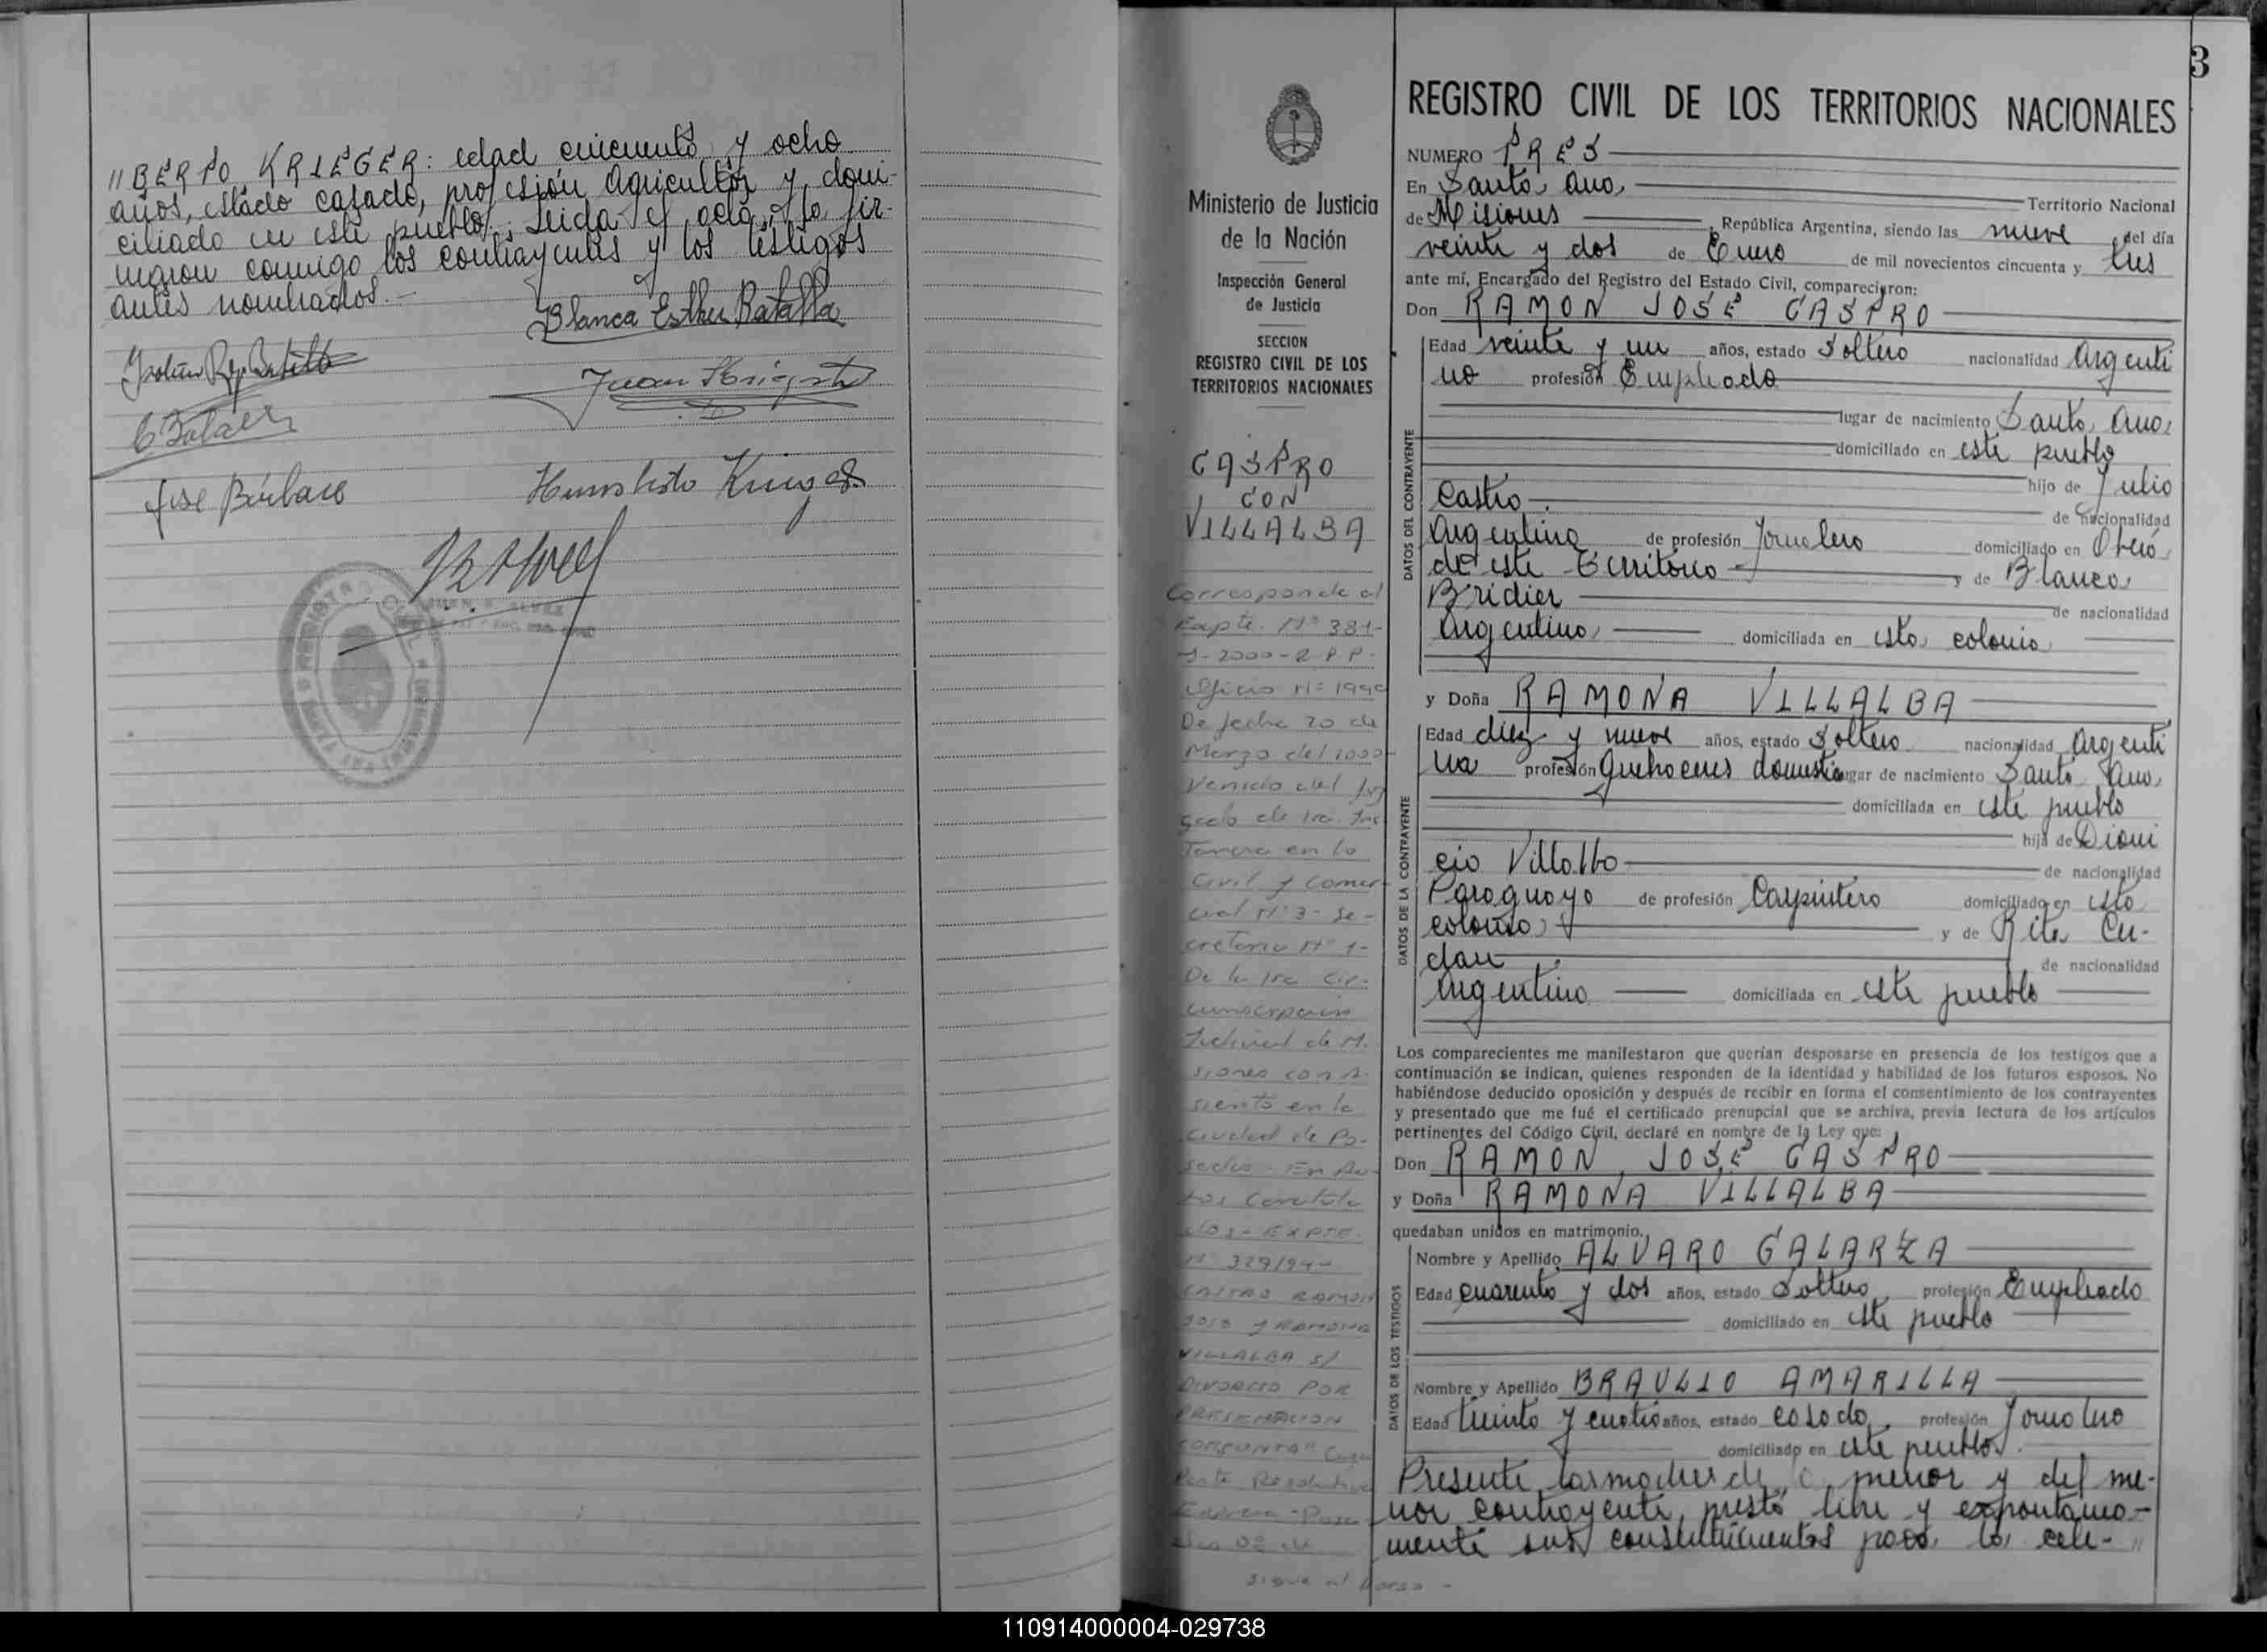 //BERTO KRIEGER: edad cincuenta y ocho
años, estado casado, profesión Agricultor y domi-
ciliado en este pueblo; Leida el acta, la fir-
maron conmigo los contrayentes y los testigos
antes nombrados.-
Blanca Esther Batalla
José Bárbaro
Humberto Krieger
3
REGISTRO CIVIL DE LOS TERRITORIOS NACIONALES
Ministerio de Justicia
de la Nación
Inspección General
de Justicia
SECCION
REGISTRO CIVIL DE LOS
TERRITORIOS NACIONALES
CASTRO
CON
VILLALBA
Corresponde al
Expte. Nº 381-
J-2000-R.P.P.
Oficio Nº 1999
De fecha 20 de
Marzo del 2000
Venido del Juz
gado de 1ra. Ins
Tancia en lo
Civil y Comer
cial Nº 3- Se-
cretaria Nº 1-
De la 1ra. Cir-
cunscripción
Judicial de Mi
siones con A
siento en la
ciudad de Po-
sadas- En Au-
tos Caratula
dos- EXPTE.
Nº 329/94-
CASTRO RAMON
JOSE Y RAMONA
VILLALBA S/
DIVORCIO POR
PRESENTACION
CONJUNTA" Cuya
Parte Resolutiva
sigue al Dorso -
NUMERO TRES
En Santa Ana, Territorio Nacional
de Misiones, República Argentina, siendo las nueve del día
veinte y dos de Enero de mil novecientos cincuenta y tres
ante mí, Encargado del Registro del Estado Civil, comparecieron:
Don RAMON JOSE CASTRO
DATOS DEL CONTRAYENTE
Edad veinte y un años, estado Soltero nacionalidad Argenti
no profesión Empleado
lugar de nacimiento Santa Ana,
domiciliado en este pueblo
hijo de Julio
Castro. de nacionalidad
Argentina de profesión Jornalero domiciliado en Oberá
de este Territorio y de Blanca
Bridier de nacionalidad
Argentina, domiciliada en esta colonia
y Doña RAMONA VILLALBA
DATOS DE LA CONTRAYENTE
Edad diez y nueve años, estado Soltera nacionalidad Argenti
na profesión Quehaceres domestic lugar de nacimiento Santa Ana,
domiciliada en este pueblo
hija de Dioni
cio Villalba de nacionalidad
Paraguayo de profesión Carpintero domiciliado en esta
colonia, y de Rita Cu-
dau de nacionalidad
Argentina domiciliada en este pueblo
Los comparecientes me manifestaron que querían desposarse en presencia de los testigos que a
continuación se indican, quienes responden de la identidad y habilidad de los futuros esposos. No
habiéndose deducido oposición y después de recibir en forma el consentimiento de los contrayentes
y presentado que me fué el certificado prenupcial que se archiva, previa lectura de los artículos
pertinentes del Código Civil, declaré en nombre de la Ley que:
Don RAMON JOSE CASTRO
y Doña RAMONA VILLALBA
quedaban unidos en matrimonio.
DATOS DE LOS TESTIGOS
Nombre y Apellido ALVARO GALARZA
Edad cuarenta y dos años, estado Soltero, profesión Empleado
domiciliado en este pueblo
Nombre y Apellido BRAULIO AMARILLA
Edad treinta y cuatro años, estado casado, profesión Jornalero
domiciliado en este pueblo.
Presente las madres de menor y del me-
nor contrayente, prestó libre y expontanea-
mente sus consentimientos para la cele- //
110914000004-029738